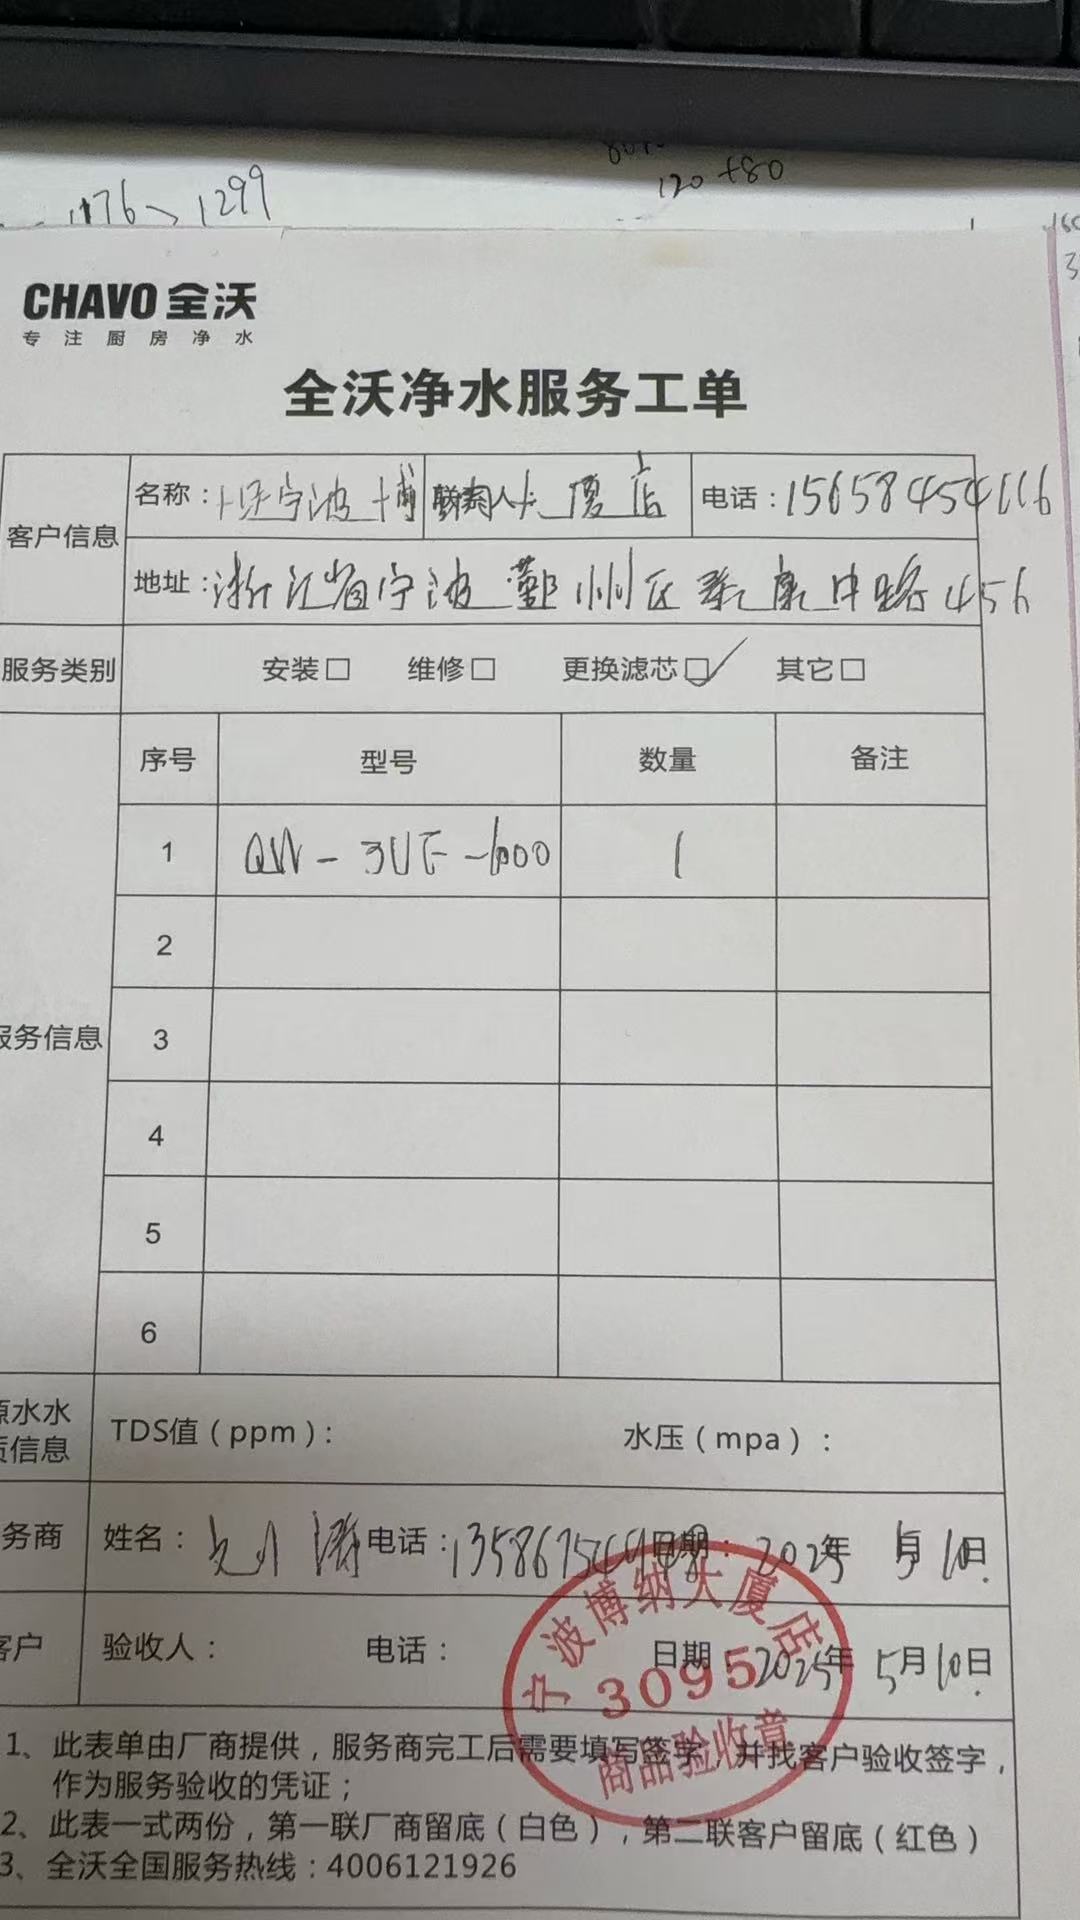 1176、1299
120 +80
CHAVO 全沃
专注厨房净水
全沃净水服务工单
客户信息
名称：宁波博
联系人 大厦店
电话：15658454116
地址：浙江省宁波鄞州区泰康中路456
服务类别
安装□ 维修□ 更换滤芯□✓ 其它□
服务信息
序号 型号 数量 备注
1 QW-3UF-1000 1
2
3
4
5
6
源水水
质信息
TDS值（ppm）： 水压（mpa）：
务商 姓名： 涛 电话： 日期：2025年 5月10日
客户 验收人： 电话： 日期：2025年 5月10日
宁波博纳大厦店
3095
商品验收章
1、此表单由厂商提供，服务商完工后需要填写签字，并找客户验收签字，
作为服务验收的凭证；
2、此表一式两份，第一联厂商留底（白色），第二联客户留底（红色）
3、全沃全国服务热线：4006121926